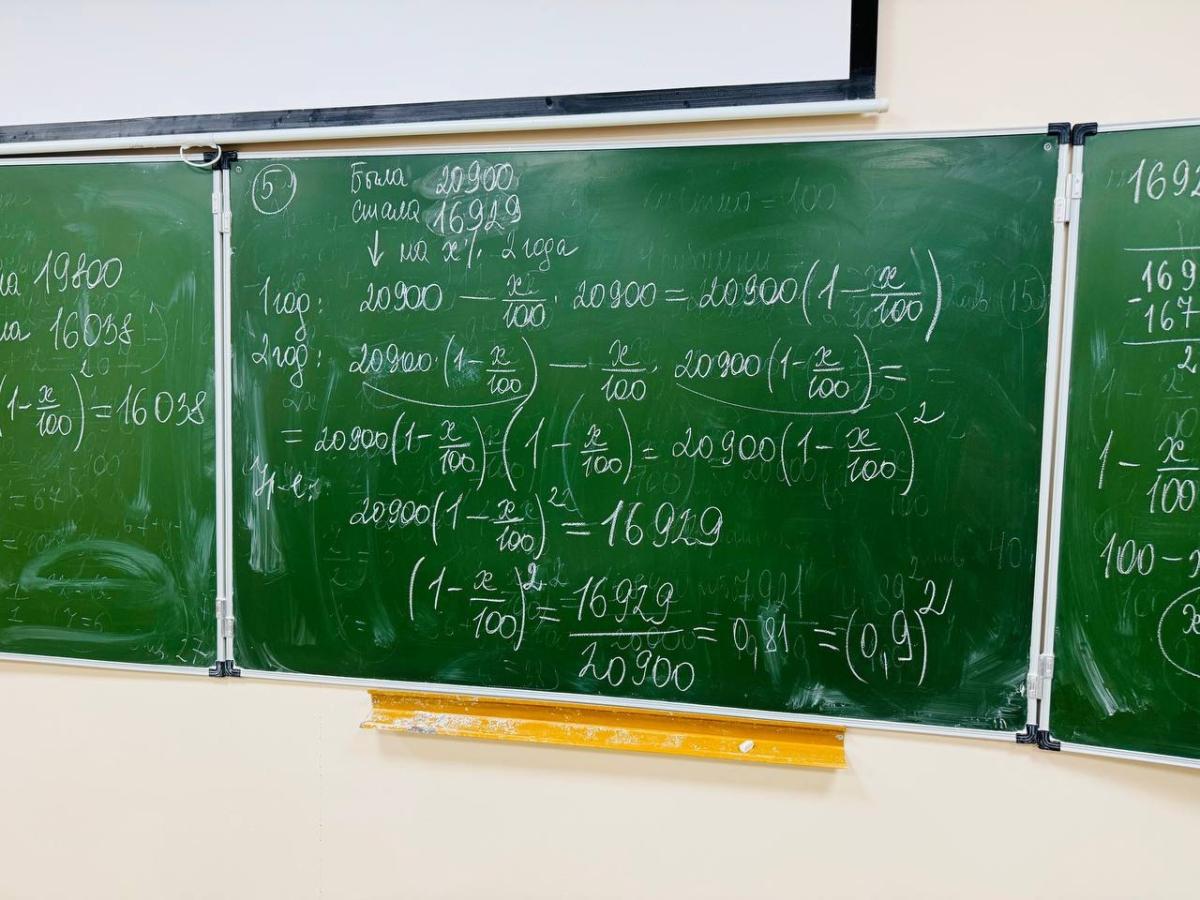 19800
16038
(1-x/100) = 16038
5
Была 20900
стала 16929
↓ на x% 2 года
1 год: 20900 - x/100 · 20900 = 20900(1-x/100)
2 год: 20900·(1-x/100) - x/100 · 20900(1-x/100) =
= 20900(1-x/100)·(1-x/100) = 20900(1-x/100)²
Ур-е:
20900(1-x/100)² = 16929
(1-x/100)² = 16929/20900 = 0,81 = (0,9)²
1692
169
-167
2
1-x/100
100-x
x